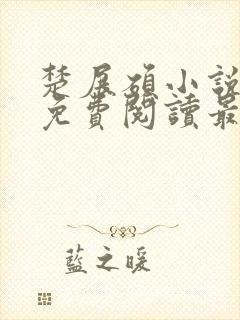 楚展碩小說
免費閱讀最
藍之暖